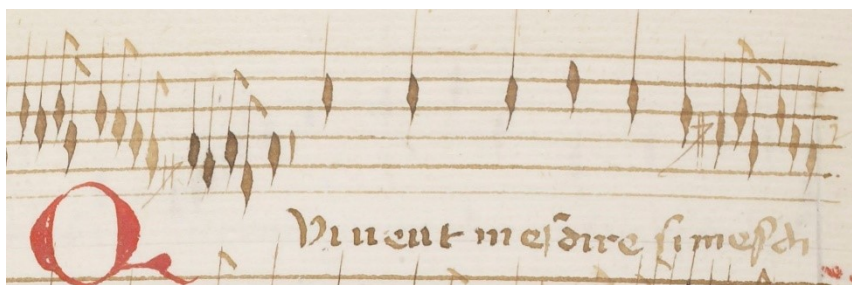 Q Vi vuent mesdire si mesdi